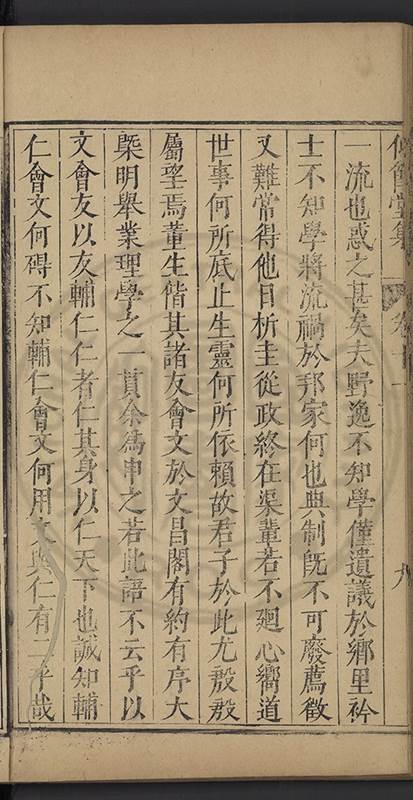 一流也惑之甚矣夫野逸不知學僅遺議於鄉里衿
士不知學將流禍於邦家何也典制旣不可廢薦徵
又難常得他日析圭從政終在渠輩若不廻心嚮道
世事何所底止生靈何所依賴故君子於此尤殷殷
屬望焉董生偕其諸友會文於文昌閣有約有序大
槩明舉業理學之一貫余為申之若此語不云乎以
文會友以友輔仁仁者仁其身以仁天下也誠知輔
仁會文何碍不知輔仁會文何用文與仁有二乎哉